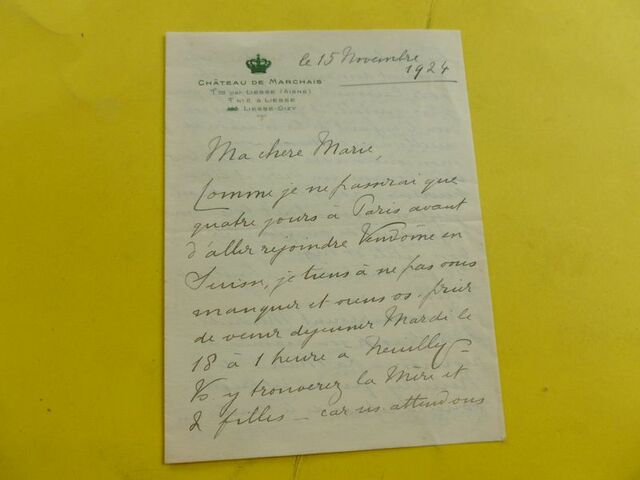 le 15 Novembre
1924
CHÂTEAU DE MARCHAIS
par LIESSE (AISNE)
T N° 6 À LIESSE
LIESSE-GIZY
Ma chère Marie,
Comme je ne passerai que
quatre jours à Paris avant
d'aller rejoindre Vendôme en
Suisse, je tiens à ne pas vous
manquer et viens vs. prier
de venir dejeuner Mardi le
18 à 1 heure à Neuilly –
Vs y trouverez la Mère et
2 filles – car ns attendons